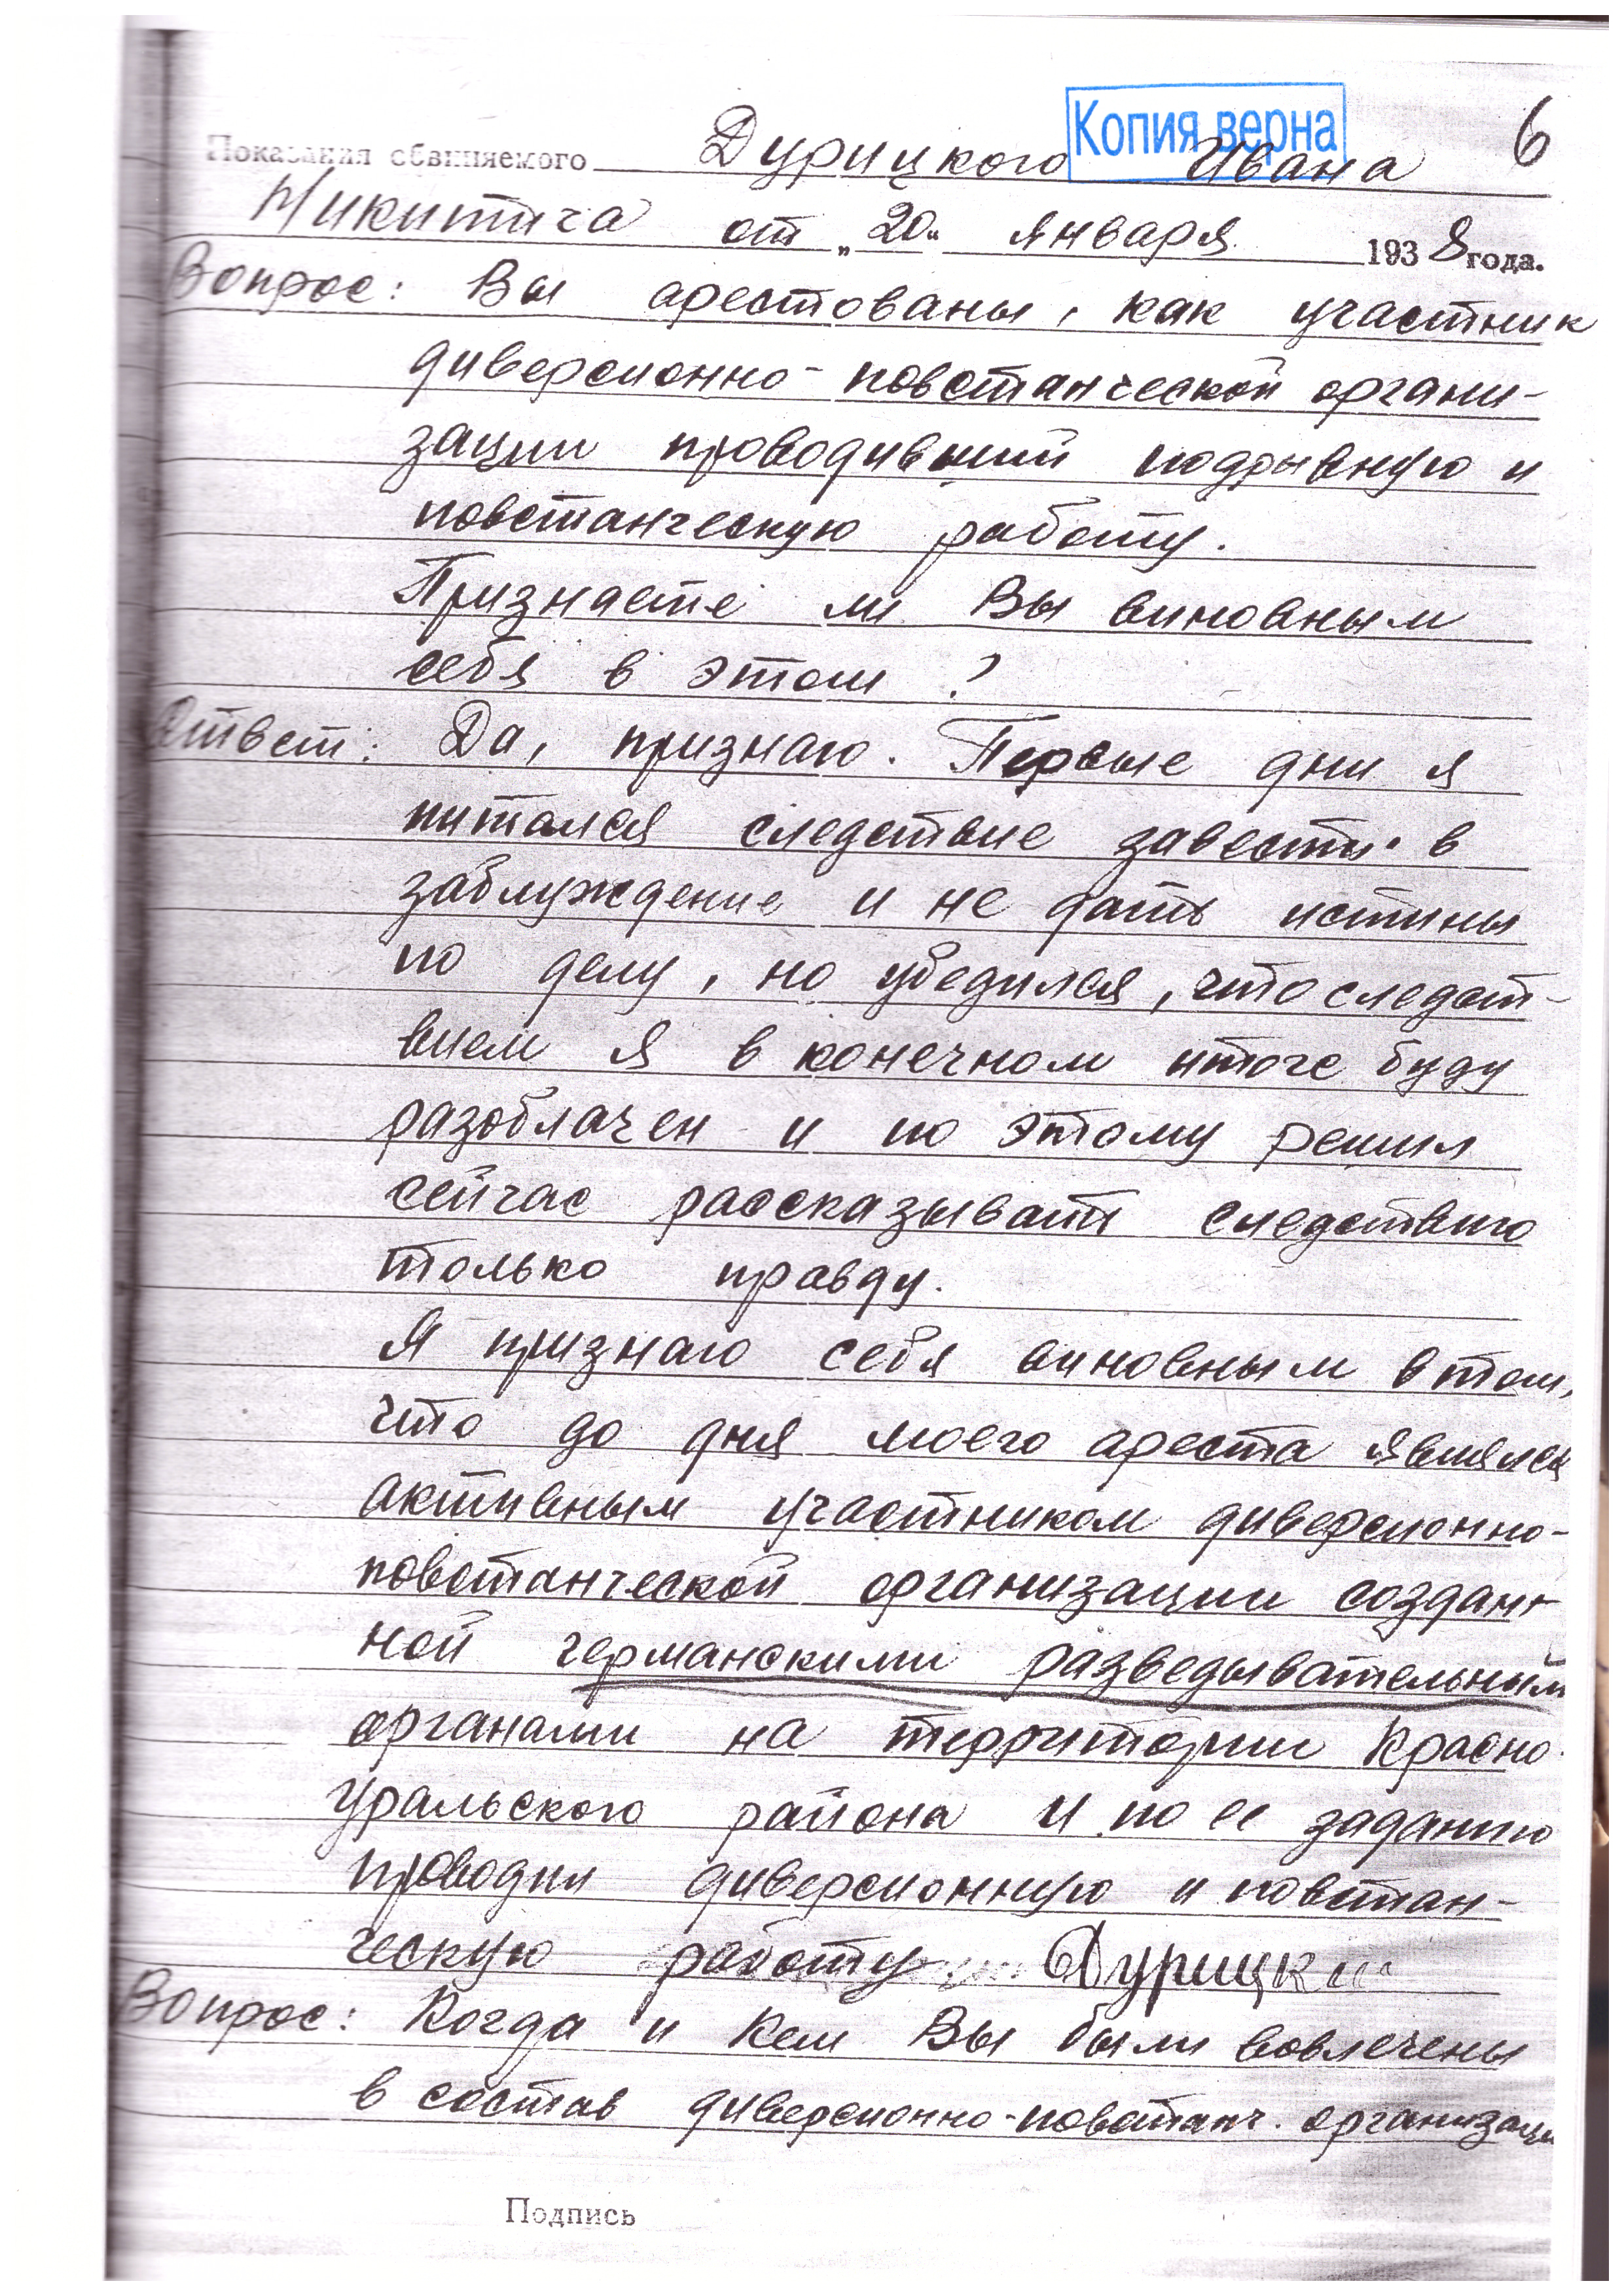 Копия верна
6
Показания обвиняемого Дурицкого Ивана
Никитича от „20“ января 1938 года.
Вопрос: Вы арестованы, как участник
диверсионно-повстанческой органи-
зации проводивший подрывную и
повстанческую работу.
Признаете ли Вы виновным
себя в этом?
Ответ: Да, признаю. Первые дни я
питался следствие завести в
заблуждение и не дать истины
по делу, но убедился, что следст-
вием я в конечном итоге буду
разоблачен и по этому решил
сейчас рассказывать следствию
только правду.
Я признаю себя виновным в том,
что до дня моего ареста являлся
активным участником диверсионно-
повстанческой организации создан-
ной германскими разведывательными
органами на территории Красно-
уральского района и по ее заданию
проводил диверсионную и повстан-
ческую работу. Дурицкий
Вопрос: Когда и кем Вы были вовлечены
в состав диверсионно-повстанч. организаци
Подпись